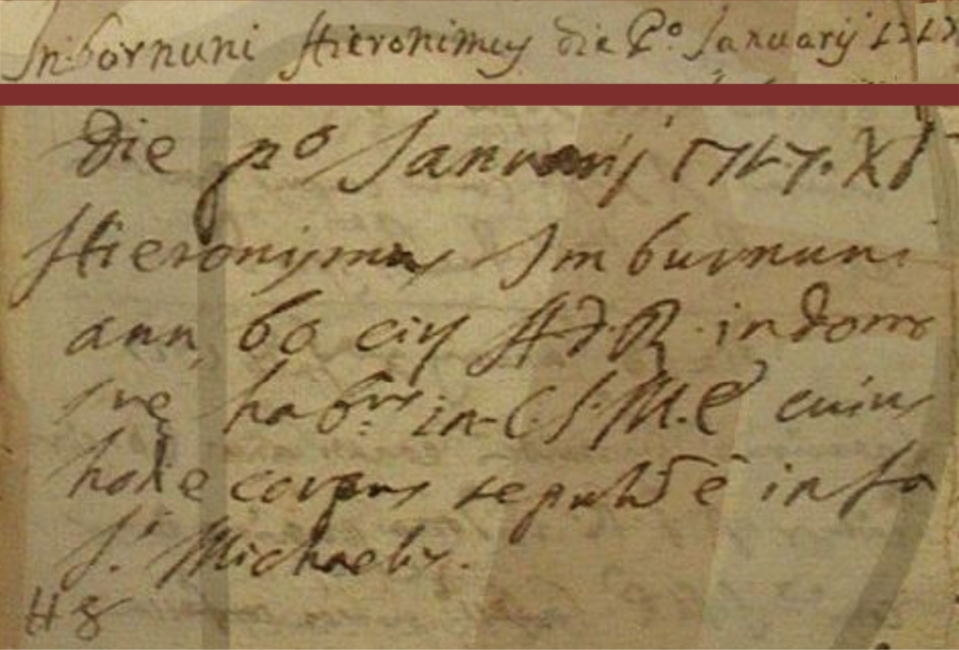 Imbornuni Hieronimus die P.º Januarij 1747
die pº Januarij 1747. XI
Hieronymus Imburnuni
ann, 60 cir A.D.R. in domo
sue habnis in C.S.M.E cuius
hodie corpus sepultũ ē in
S.ti Michaelis.
H 8